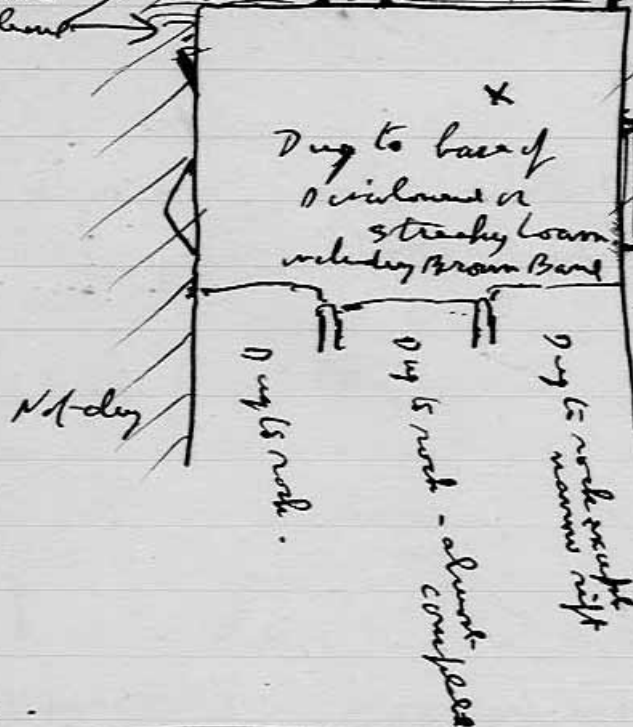 x
Dug to base of
Discoloured or
streaky Loam
including Brown Band
Not-dug
Dug to rock.
Dug to rock - almost-
complete
Dug to rock except
narrow rift